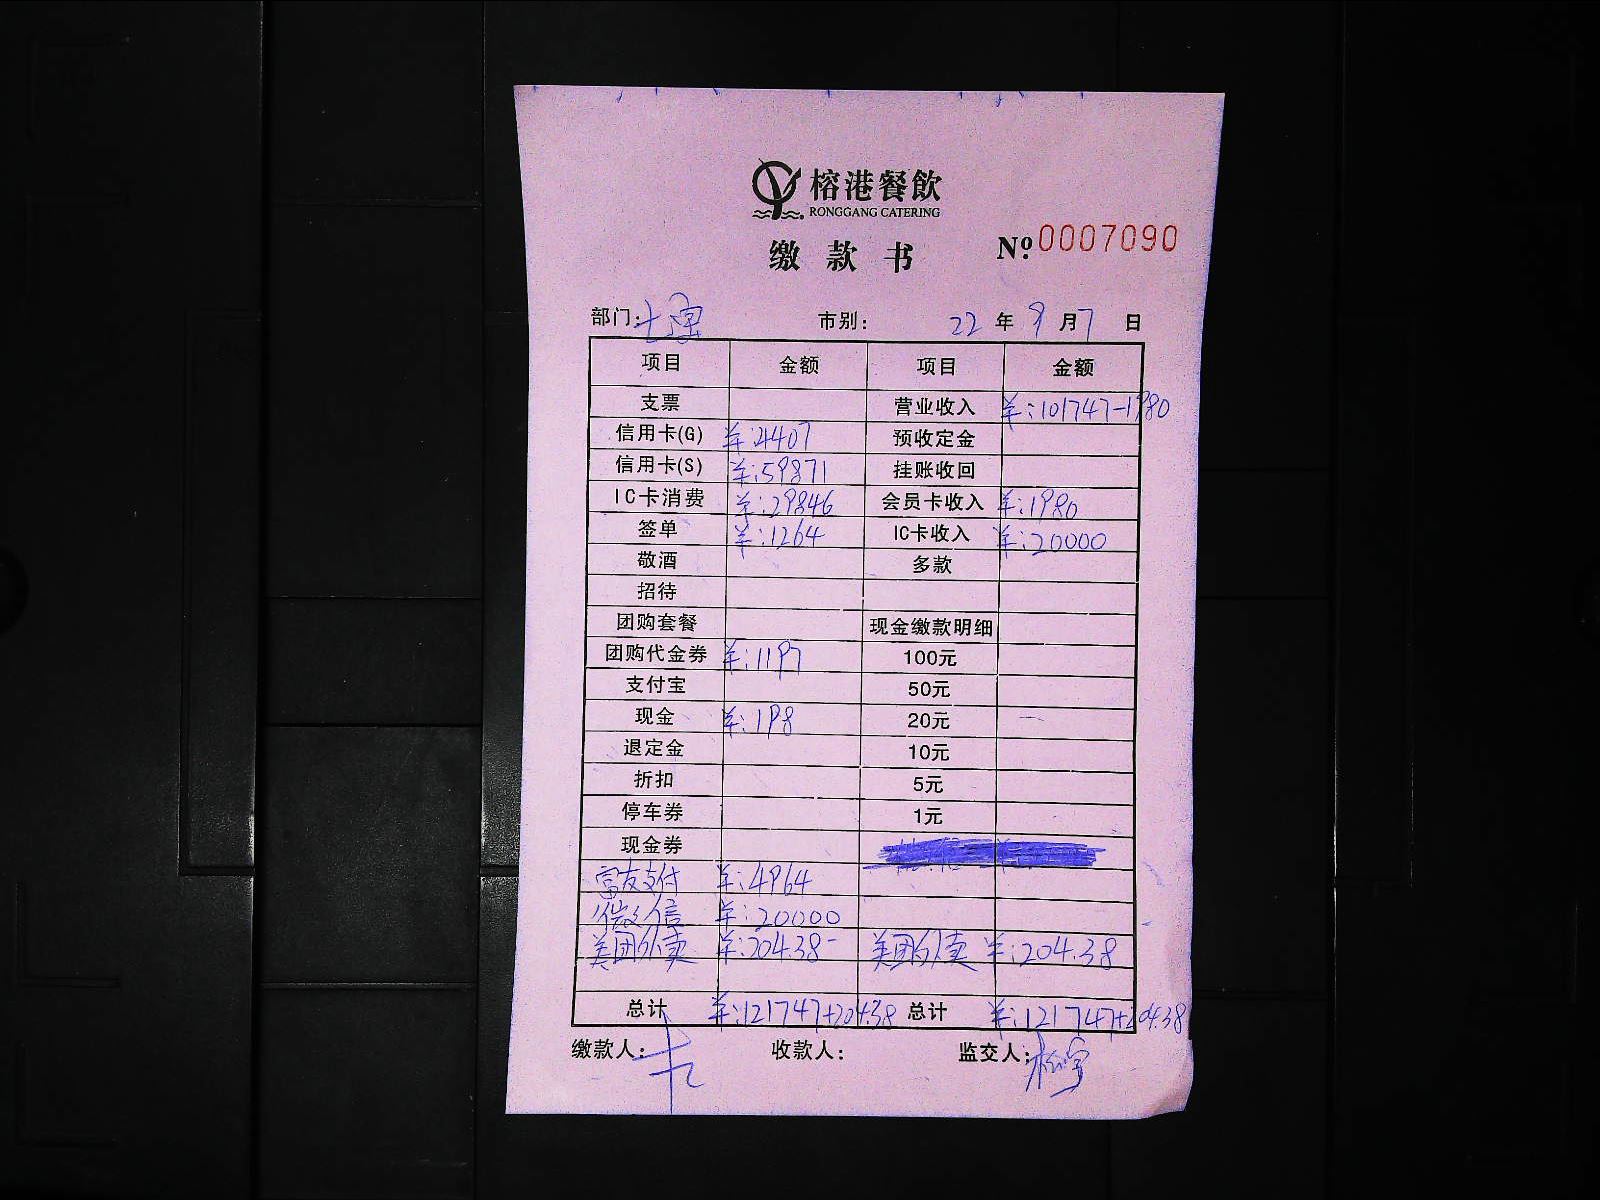 榕港餐飲
RONGGANG CATERING
缴款书 №0007090
部门: 市别: 22年9月7日
项目 金额 项目 金额
支票 营业收入 羊:101747-1980
信用卡(G) 羊:4407 预收定金
信用卡(S) 羊:59871 挂账收回
IC卡消费 羊:29846 会员卡收入 羊:1980
签单 羊:1264 IC卡收入 羊:20000
敬酒 多款
招待
团购套餐 现金缴款明细
团购代金券 羊:1197 100元
支付宝 50元
现金 羊:198 20元
退定金 10元
折扣 5元
停车券 1元
现金券
富友支付 羊:4964
微信 羊:20000
美团外卖 羊:204.38- 美团外卖 羊:204.38
总计 羊:121747+204.38 总计 羊:121747+204.38
缴款人: 收款人: 监交人: